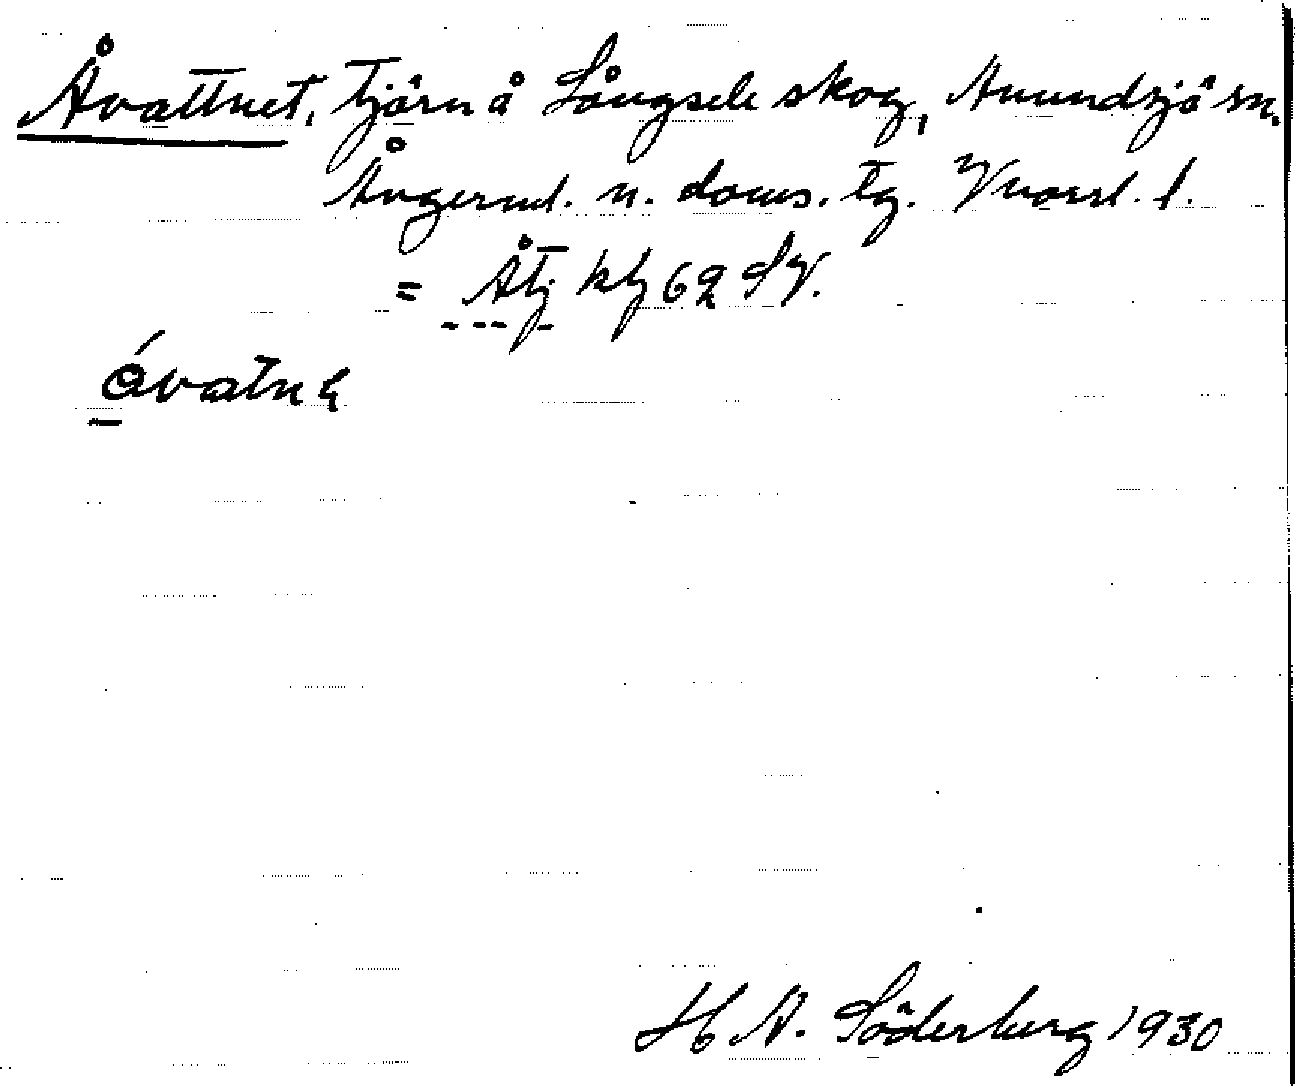 Åvattnet, tjärn å Långsele skog, Anundsjö sn.
Ångerml. n. doms. tg. Vnorrl. l.
= Åtj kbl 62 SV.
åvatnɂ
H N. Söderberg 1930